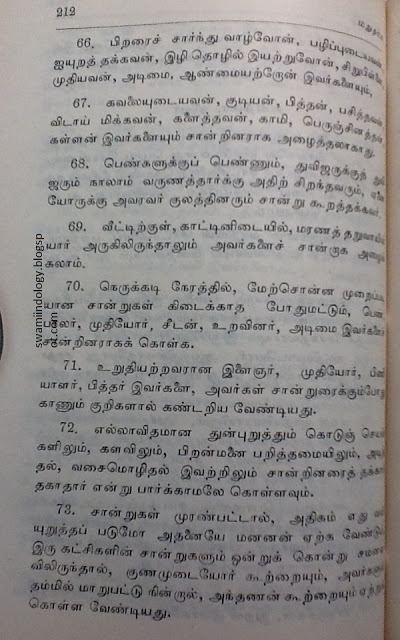 212
66. பிறரைச் சார்ந்து வாழ்வோன், பழிப்புடையவன்,
ஐயுறத் தக்கவன், இழி தொழில் இயற்றுவோன்,
முதியவன், அடிமை, ஆண்மையற்றோன் இவர்களையும்,
67. கவலையுடையவன், குடியன், பித்தன்,
விடாய் மிக்கவன், களைத்தவன், காமி,
கள்ளன் இவர்களையும் சான்றினராக அழைத்தலாகாது.
68. பெண்களுக்குப் பெண்ணும், துவிஜருக்குத்
ஜரும் நாலாம் வருணத்தார்க்கு அதிற் சிறந்தவரும்,
யோருக்கு அவரவர் குலத்தினரும் சான்று கூறத்தக்கவர்.
69. வீட்டிற்குள், காட்டினிடையில், மரணத்
யார் அருகிலிருந்தாலும் அவர்களைச் சான்றாக
கலாம்.
70. நெருக்கடி நேரத்தில், மேற்சொன்ன
யான சான்றுகள் கிடைக்காத போதுமட்டும்,
பாலர், முதியோர், சீடன், உறவினர், அடிமை
சான்றினராகக் கொள்க.
71. உறுதியற்றவரான இளைஞர், முதியோர்,
யாளர், பித்தர் இவர்களை, அவர்கள் சான்றுரைக்கும்போது
காணும் குறிகளால் கண்டறிய வேண்டியது.
72. எல்லாவிதமான துன்புறுத்தும் கொடுஞ்
களிலும், களவிலும், பிறன்மனை பறித்தமையிலும்,
தல், வசைமொழிதல் இவற்றிலும் சான்றினரைத்
தகாதார் என்று பார்க்காமலே கொள்ளவும்.
73. சான்றுகள் முரண்பட்டால், அதிகம் எது
யுறுத்தப் படுமோ அதனையே மன்னன் ஏற்க
இரு கட்சிகளின் சான்றுகளும் ஒன்றுக் கொன்று
விலிருந்தால், குணமுடையோர் கூற்றையும்,
தம்மில் மாறுபட்டு நின்றால், அந்தணன் கூற்றையும்
கொள்ள வேண்டியது.
swamiindology.blogsp